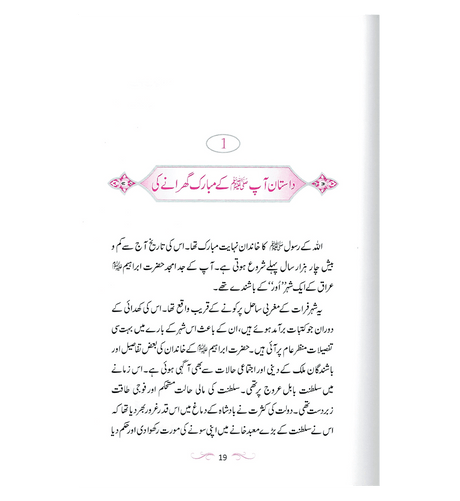 1
داستان آپ ﷺ کے مبارک گھرانے کی
اللہ کے رسول ﷺ کا خاندان نہایت مبارک تھا۔ اس کی تاریخ آج سے کم و
بیش چار ہزار سال پہلے شروع ہوتی ہے۔ آپ کے جد امجد حضرت ابراہیم ﷺ
عراق کے ایک شہر ”اُور“ کے باشندے تھے۔
یہ شہر فرات کے مغربی ساحل پر کوفے کے قریب واقع تھا۔ اس کی کھدائی کے
دوران جو کتبات برآمد ہوئے ہیں، ان کے باعث اس شہر کے بارے میں بہت سی
تفصیلات منظر عام پر آئی ہیں۔ حضرت ابراہیم ﷺ کے خاندان کی بعض تفاصیل اور
باشندگان ملک کے دینی اور اجتماعی حالات سے بھی آگہی ہوئی ہے۔ اس زمانے
میں سلطنت بابل عروج پر تھی۔ سلطنت کی مالی حالت مستحکم اور فوجی طاقت
زبردست تھی۔ دولت کی کثرت نے بادشاہ کے دماغ میں اس قدر غرور بھر دیا تھا کہ
اس نے سلطنت کے بڑے معبد خانے میں اپنی سونے کی مورت رکھوا دی اور حکم دیا
19